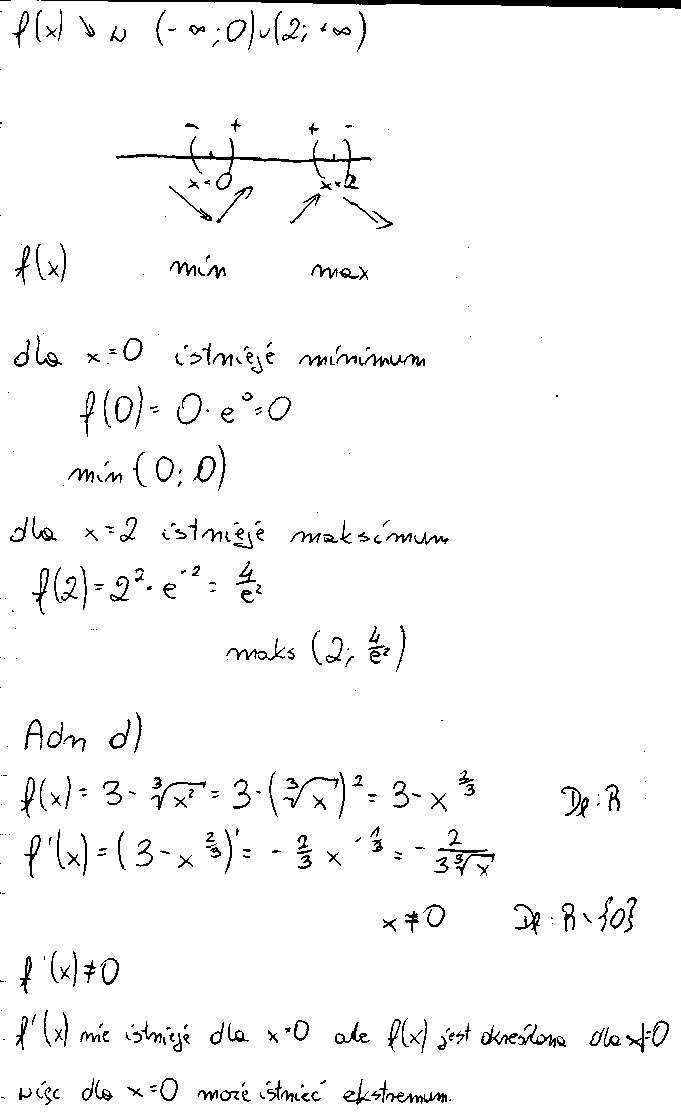 f(x) ↘ w (-∞;0)∪(2;+∞)
- + + -
x=0 x=2
f(x) min max
dla x=0 istnieje minimum
f(0)= 0·e⁰=0
min (0;0)
dla x=2 istnieje maksimum
f(2)=2²·e⁻²= 4/e²
maks (2; 4/e²)
Adn d)
f(x)= 3-∛x² = 3-(∛x)² = 3-x^(2/3) Df:R
f'(x)=(3-x^(2/3))'= -2/3 x^(-1/3) = -2/(3∛x)
x≠0 Df: R\{0}
f'(x)≠0
f'(x) nie istnieje dla x=0 ale f(x) jest określona dla x=0
więc dla x=0 może istnieć ekstremum.